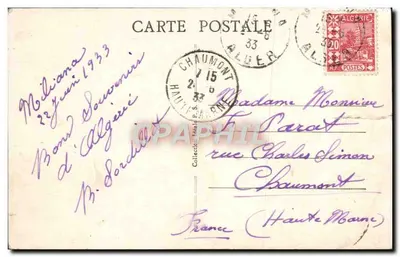 CARTE POSTALE
ALGER
33
ALGERIE
POSTES
CHAUMONT
7 15
33
HAUTE MARNE
Miliana
22 Juin 1933
Bons Souvenirs
d'Algérie
B. Sordillet
Madame Monsieur
F. Parat
rue Charles Simon
Chaumont
France (Haute Marne)